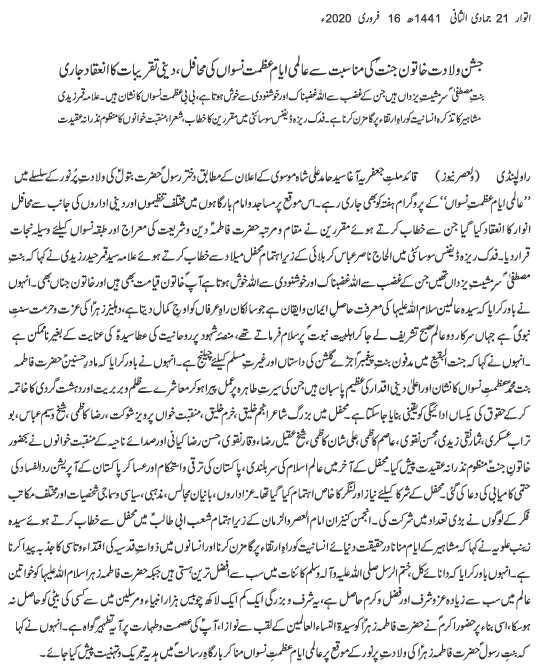 اتوار 21 جمادی الثانی 1441ھ 16 فروری 2020ء
جشن ولادت خاتون جنت کی مناسبت سے عالمی ایام عظمت نسواں کی محافل، دینی تقریبات کا انعقاد جاری
بنت مصطفیٰؐ سر مشیت یزداں ہیں جن کے غضب سے اللہ غضبناک اور خوشنودی سے خوش ہوتا ہے، بی بی عظمت نسواں کا نشان ہیں۔ علامہ قمر زیدی
مشاہیر کا تذکرہ انسانیت کو راہ ارتقاء پر گامزن کرنا ہے۔ فدک ریزہ ڈیفنس سوسائٹی میں مقررین کا خطاب، شعرا، منقبت خوانوں کا منظوم نذرانہ عقیدت
راولپنڈی (ولعصر نیوز) قائد ملت جعفریہ آغا سید حامد علی شاہ موسوی کے اعلان کے مطابق دختر رسولؐ حضرت بتولؑ کی ولادت پُر نور کے سلسلے میں
"عالمی ایام عظمتِ نسواں" کے پروگرام ہفتہ کو بھی جاری رہے۔ اس موقع پر مساجد و امام بارگاہوں میں مختلف تنظیموں اور دینی اداروں کی جانب سے محافل
انوار کا انعقاد کیا گیا جن سے خطاب کرتے ہوئے مقررین نے مقام و مرتبہ حضرت فاطمہؑ دین و شریعت کی معراج اور طبقہ نسواں کیلئے وسیلہ نجات
قرار دیا۔ فدک ریزہ ڈیفنس سوسائٹی میں الحاج ناصر عباس کربلائی کے زیر اہتمام محفل میلاد سے خطاب کرتے ہوئے علامہ سید قمر حیدر زیدی نے کہا کہ بنت
مصطفیٰؐ سر مشیت یزداں تھیں جن کے غضب سے اللہ غضبناک اور خوشنودی سے اللہ خوش ہوتا ہے آپؑ خاتون قیامت بھی ہیں اور خاتون جناں بھی۔ انہوں
نے باور کرایا کہ سیدہ عالمین سلام اللہ علیہا کی معرفت حاصل ایمان و ایقان ہے جو سالکان راہ عرفاں کو اوج کمال دیتا ہے، دہلیز زہراؑ کی عزت و حرمت سنتِ
نبویؐ ہے جہاں سرکار دو عالمؐ صبح تشریف لے جا کر اہلبیت نبوتؑ پر سلام فرماتے تھے، منصئہ شہود پر روحانیت کی عطا سیدہؑ کی عنایت کے بغیر ناممکن ہے
۔انہوں نے کہا کہ جنت البقیع میں مدفون بنت پیغمبرؐ اجڑے گلشن کی داستاں اور غیرت مسلم کیلئے چیلنج ہے۔ انہوں نے باور کرایا کہ مادر حسنینؑ حضرت فاطمہ
بنت محمدؐ عظمت نسواں کا نشان اور اعلیٰ دینی اقدار کی عظیم پاسبان ہیں جن کی سیرت طاہرہ پر عمل پیرا ہو کر معاشرے سے ظلم و بربریت اور دہشت گردی کا خاتمہ
کر کے حقوق کی یکساں ادائیگی کو یقینی بنایا جا سکتا ہے۔ محفل میں بزرگ شاعر انجم خلیق، خرم خلیق، منقبت خواں پرویز شوکت، رضا کاظمی، شیخ وسیم عباس، بو
تراب عسکری، ثنا نقی زیدی، محسن نقوی، عاصم کاظمی، علی شان کاظمی، شیخ عقیل رضا، وقار نقوی، حسن رضا کیانی اور صدائے ناحیہ کے منقبت خوانوں نے بحضور
خاتون جنتؑ منظوم نذرانہ عقیدت پیش کیا۔ محفل کے آخر میں عالم اسلام کی سربلندی، پاکستان کی ترقی و استحکام اور عساکر پاکستان کے آپریشن ردالفساد کی
حتمی کامیابی کی دعا کی گئی۔ محفل کے شرکا کیلئے نیاز اور لنگر کا خاص اہتمام کیا گیا تھا۔ عزاداروں، بانیان مجالس، مذہبی، سیاسی و سماجی شخصیات اور مختلف مکاتب
فکر کے لوگوں نے بڑی تعداد میں شرکت کی۔ انجمن کنیزان امام العصر والزمان کے زیر اہتمام شعب ابی طالبؑ میں محفل سے خطاب کرتے ہوئے سیدہ
زینب علویہ نے کہا کہ مشاہیر کے ایام منانا در حقیقت دنیائے انسانیت کو راہ ارتقاء پر گامزن کرنا اور انسانوں میں ذوات قدسیہ کی اقتداء و تاسی کا جذبہ پیدا کرنا
ہے۔ انہوں نے باور کرایا کہ دانائے کل، ختم الرسل صلی اللہ علیہ و آلہ وسلم کائنات میں سب سے افضل ترین ہستی ہیں جبکہ حضرت فاطمہ زہرا سلام اللہ علیہا کو خواتین
عالم میں سب سے زیادہ عز و شرف اور فضل و کرم حاصل ہے، یہ شرف و بزرگی ایک کم ایک لاکھ چوبیس ہزار انبیاء و مرسلین میں سے کسی کی بیٹی کو حاصل نہ
ہو سکا، اسی بناء پر حضور اکرمؐ نے حضرت فاطمہ زہراؑ کو سیدۃ النساء العالمین کے لقب سے نوازا، آپؑ کی عصمت و طہارت پر آیۂ تطہیر گواہ ہے۔ انہوں نے کہا
کہ بنت رسولؐ حضرت فاطمہ زہراؑ کی ولادت پُر نور کے موقع پر عالمی ایام عظمت نسواں منا کر بارگاہ رسالتؐ میں ہدیہ تبریک و تہنیت پیش کیا جائے۔